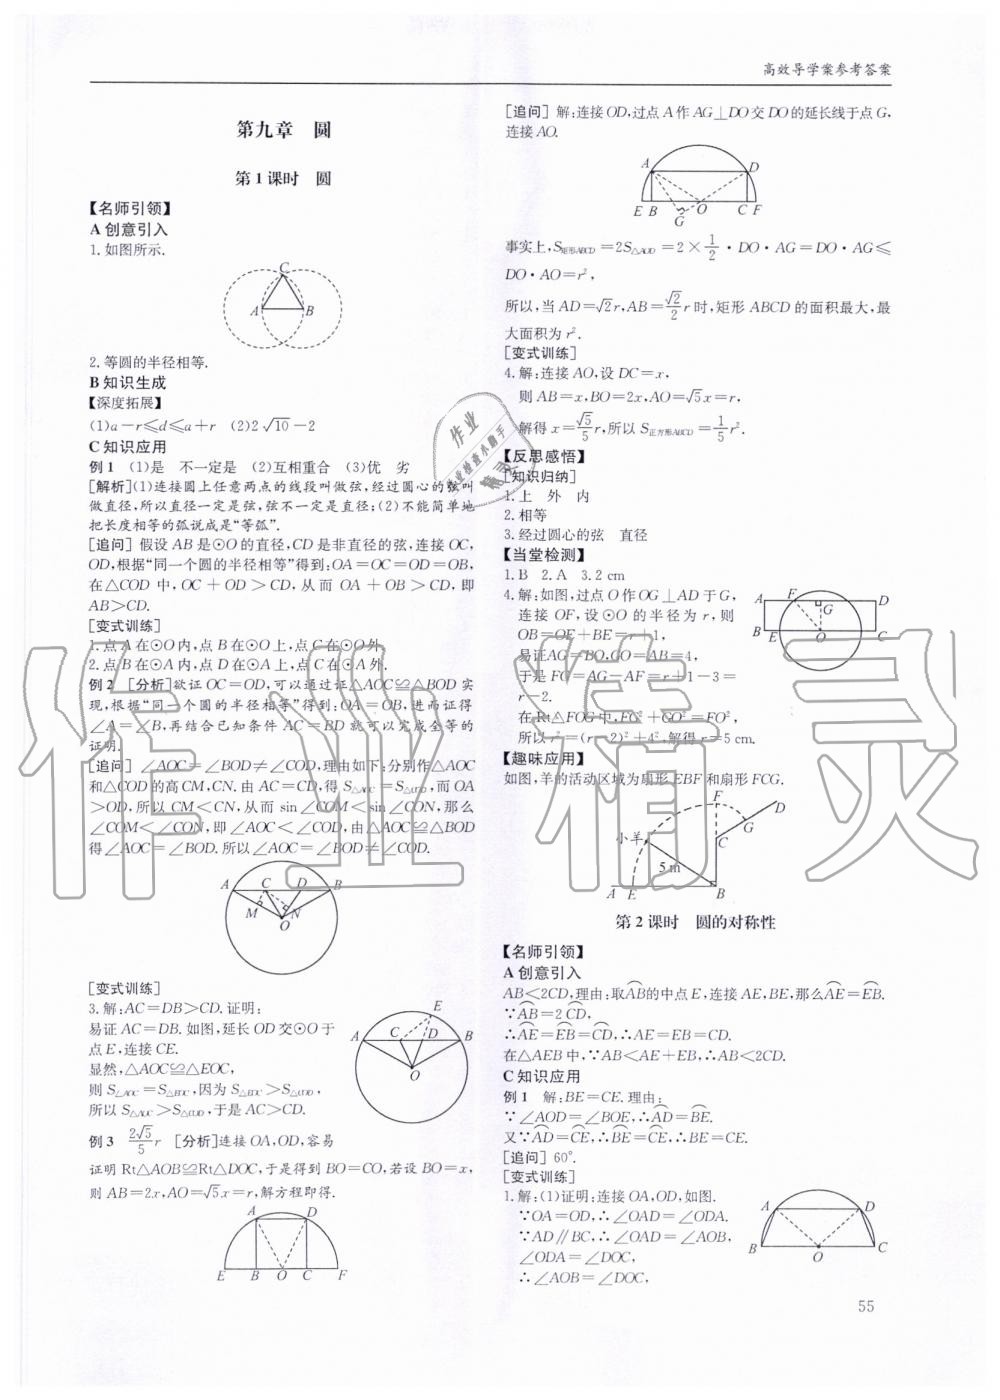 高效导学案参考答案
第九章 圆
第1课时 圆
【名师引领】
A 创意引入
1.如图所示.
C
A B
2.等圆的半径相等.
B 知识生成
【深度拓展】
(1)a－r≤d≤a＋r (2)2√10－2
C 知识应用
例1 (1)是 不一定是 (2)互相重合 (3)优 劣
[解析](1)连接圆上任意两点的线段叫做弦,经过圆心的弦叫
做直径,所以直径一定是弦,弦不一定是直径;(2)不能简单地
把长度相等的弧说成是“等弧”.
[追问] 假设AB是⊙O的直径,CD是非直径的弦,连接OC,
OD,根据“同一个圆的半径相等”得到:OA＝OC＝OD＝OB,
在△COD中,OC＋OD＞CD,从而OA＋OB＞CD,即
AB＞CD.
[变式训练]
1.点A在⊙O内,点B在⊙O上,点C在⊙O外.
2.点B在⊙A内,点D在⊙A上,点C在⊙A外.
例2 [分析]欲证OC＝OD,可以通过证△AOC≌△BOD实
现,根据“同一个圆的半径相等”得到:OA＝OB,进而证得
∠A＝∠B,再结合已知条件AC＝BD就可以完成全等的
证明.
[追问] ∠AOC＝∠BOD≠∠COD,理由如下:分别作△AOC
和△COD的高CM,CN.由AC＝CD,得S△AOC＝S△COD,而OA
＞OD,所以CM＜CN,从而sin∠COM＜sin∠CON,那么
∠COM＜∠CON,即∠AOC＜∠COD,由△AOC≌△BOD
得∠AOC＝∠BOD.所以∠AOC＝∠BOD≠∠COD.
A C D B
M N
O
[变式训练]
3.解:AC＝DB＞CD.证明:
易证AC＝DB.如图,延长OD交⊙O于
点E,连接CE.
显然,△AOC≌△EOC,
则S△AOC＝S△EOC,因为S△EOC＞S△COD,
所以S△AOC＞S△COD,于是AC＞CD.
E
A C D B
O
例3 2√5/5 r [分析]连接OA,OD,容易
证明Rt△AOB≌Rt△DOC,于是得到BO＝CO,若设BO＝x,
则AB＝2x,AO＝√5x＝r,解方程即得.
A D
E B O C F
[追问] 解:连接OD,过点A作AG⊥DO交DO的延长线于点G,
连接AO.
A D
E B O C F
G
事实上,S矩形ABCD＝2S△AOD＝2×1/2·DO·AG＝DO·AG≤
DO·AO＝r²,
所以,当AD＝√2r,AB＝√2/2 r时,矩形ABCD的面积最大,最
大面积为r².
[变式训练]
4.解:连接AO,设DC＝x,
则AB＝x,BO＝2x,AO＝√5x＝r,
解得x＝√5/5 r,所以S正方形ABCD＝1/5 r².
【反思感悟】
[知识归纳]
1.上 外 内
2.相等
3.经过圆心的弦 直径
【当堂检测】
1.B 2.A 3.2 cm
4.解:如图,过点O作OG⊥AD于G,
连接OF,设⊙O的半径为r,则
OB＝OE＋BE＝r＋1,
易证AG＝BO,GO＝AB＝4,
于是FG＝AG－AF＝r＋1－3＝
r－2.
在Rt△FOG中,FG²＋GO²＝FO²,
所以r²＝(r－2)²＋4²,解得r＝5 cm.
A F D
G
B E O C
【趣味应用】
如图,羊的活动区域为扇形EBF和扇形FCG.
F D
G
小羊 C
5 m
A E B
第2课时 圆的对称性
【名师引领】
A 创意引入
AB＜2CD,理由:取A͡B的中点E,连接AE,BE,那么A͡E＝E͡B.
∵A͡B＝2 C͡D,
∴A͡E＝E͡B＝C͡D,∴AE＝EB＝CD.
在△AEB中,∵AB＜AE＋EB,∴AB＜2CD.
C 知识应用
例1 解:BE＝CE.理由:
∵∠AOD＝∠BOE,∴A͡D＝B͡E.
又∵A͡D＝C͡E,∴B͡E＝C͡E,∴BE＝CE.
[追问] 60°.
[变式训练]
1.解:(1)证明:连接OA,OD,如图.
∵OA＝OD,∴∠OAD＝∠ODA.
∵AD∥BC,∴∠OAD＝∠AOB,
∠ODA＝∠DOC,
∴∠AOB＝∠DOC,
A D
B O C
55
作业精灵
作业
作业检查小助手
精灵